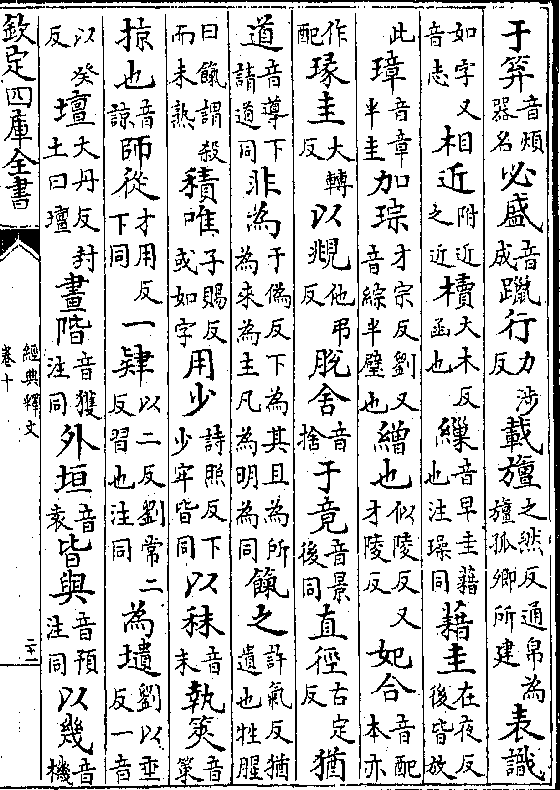 于笲音煩器名必盛音成躐行力涉反載旜之然反通帛為旜孤卿所建表識
如字又音志相近附近之近櫝大木反函也繅音早圭藉也注璪同藉圭在夜反後皆放
此璋音章半圭加琮才宗反劉又音綜半璧也繒也似陵反又才陵反妃合音配本亦
作配瑑圭大轉反以覜他弔反脫舍音捨于竟音景後同直徑古定反猶
道音導下請道同非為于偽反下為其且為所為來為主凡為明為同餼之許氣反猶遺也牲腥
曰餼謂殺而未熟積唯子賜反或如字用少詩照反下少牢皆同以秣音末執筴音策
掠也音諒師從才用反下同一肄以二反劉常二反習也注同為壝劉以垂反一音
以癸反壇大丹反封土曰壇畫階音獲注同外垣音袁皆與音預注同以幾音機
欽定四庫全書
經典釋文
卷十
二十二